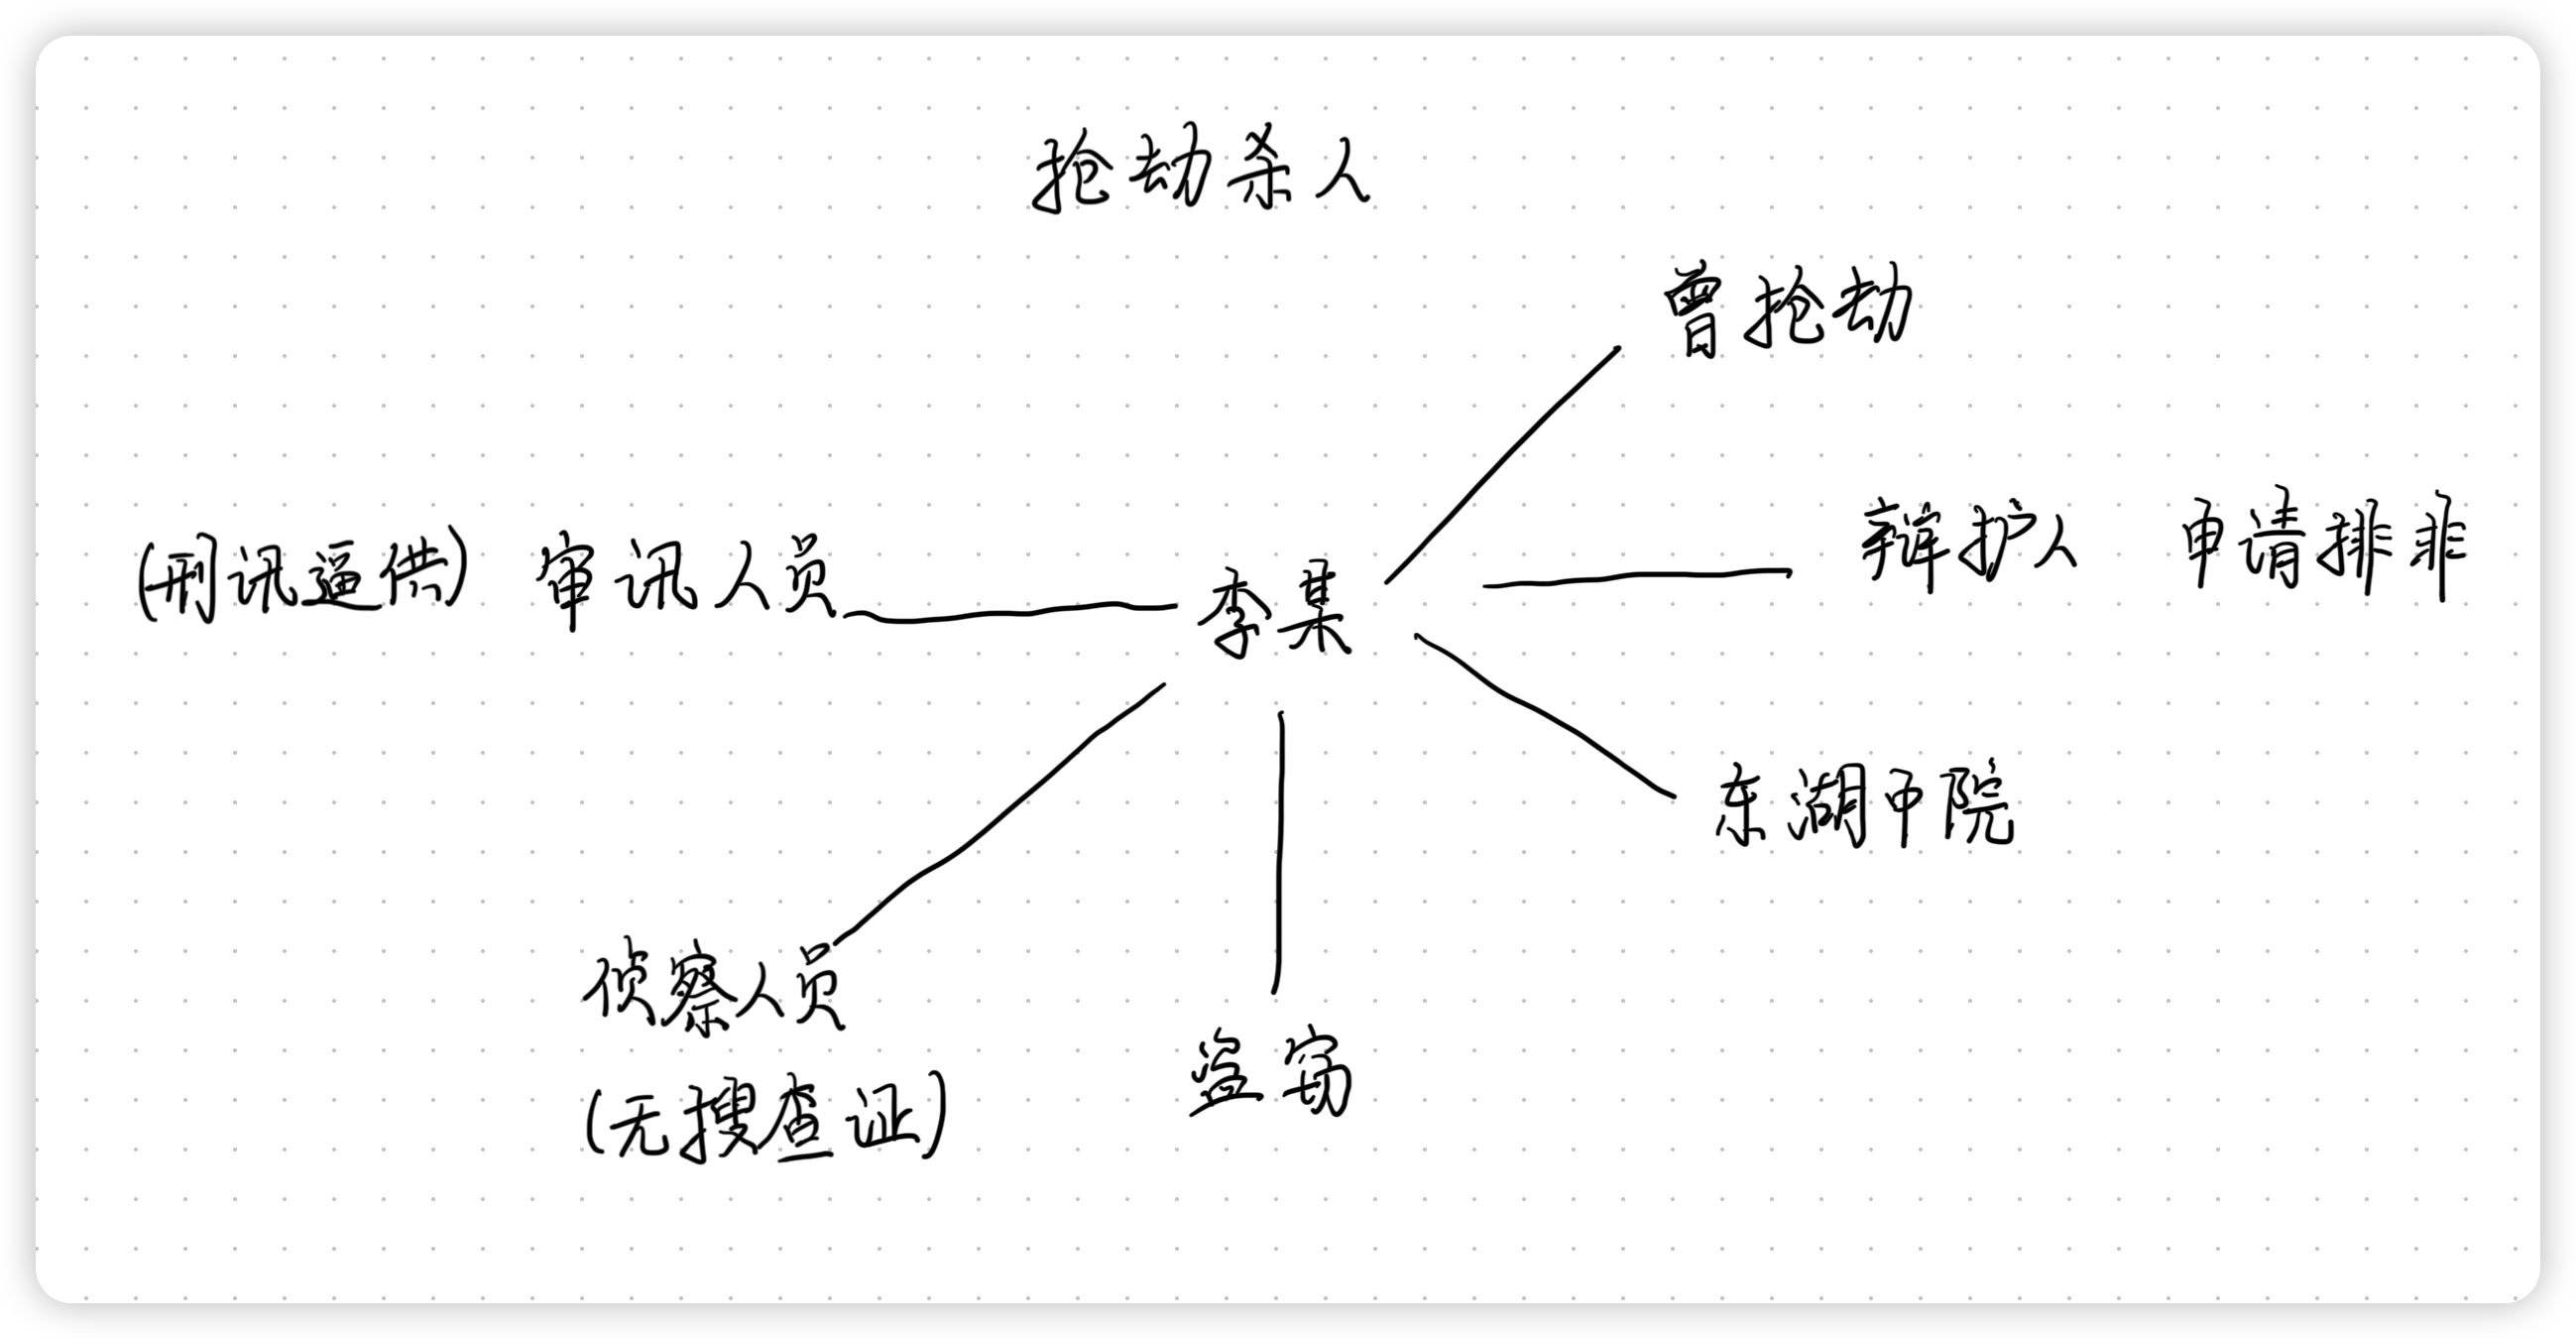 抢劫杀人
曾抢劫
(刑讯逼供) 审讯人员
李某
辩护人 申请排非
东湖中院
侦察人员
(无搜查证)
盗窃